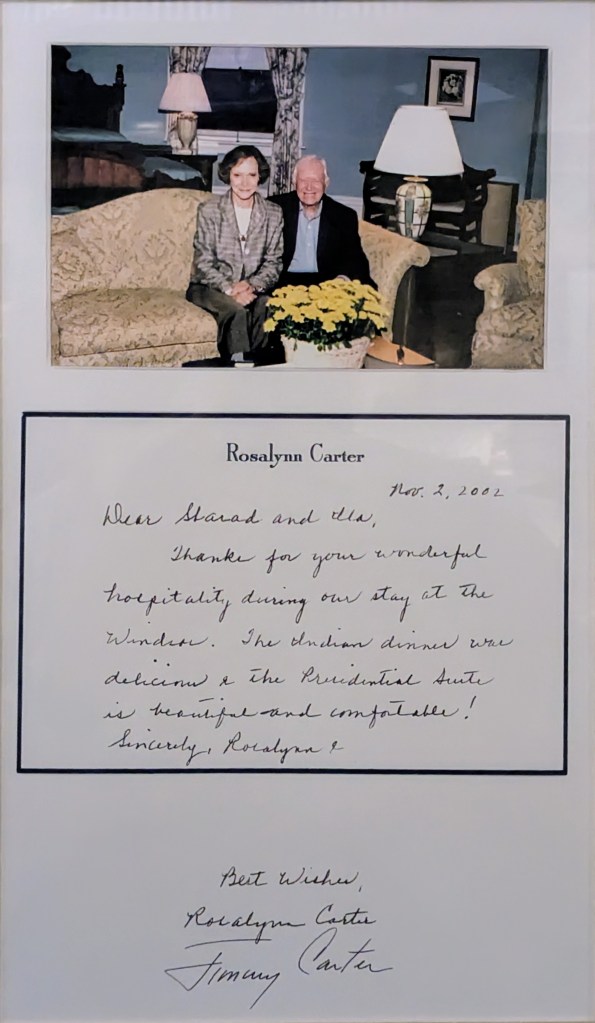 Rosalynn Carter
Nov. 2, 2002
Dear Sharad and Ila,
Thanks for your wonderful
hospitality during our stay at the
Windsor. The Indian dinner was
delicious & the Presidential Suite
is beautiful and comfortable!
Sincerely, Rosalynn &
Best Wishes,
Rosalynn Carter
Jimmy Carter